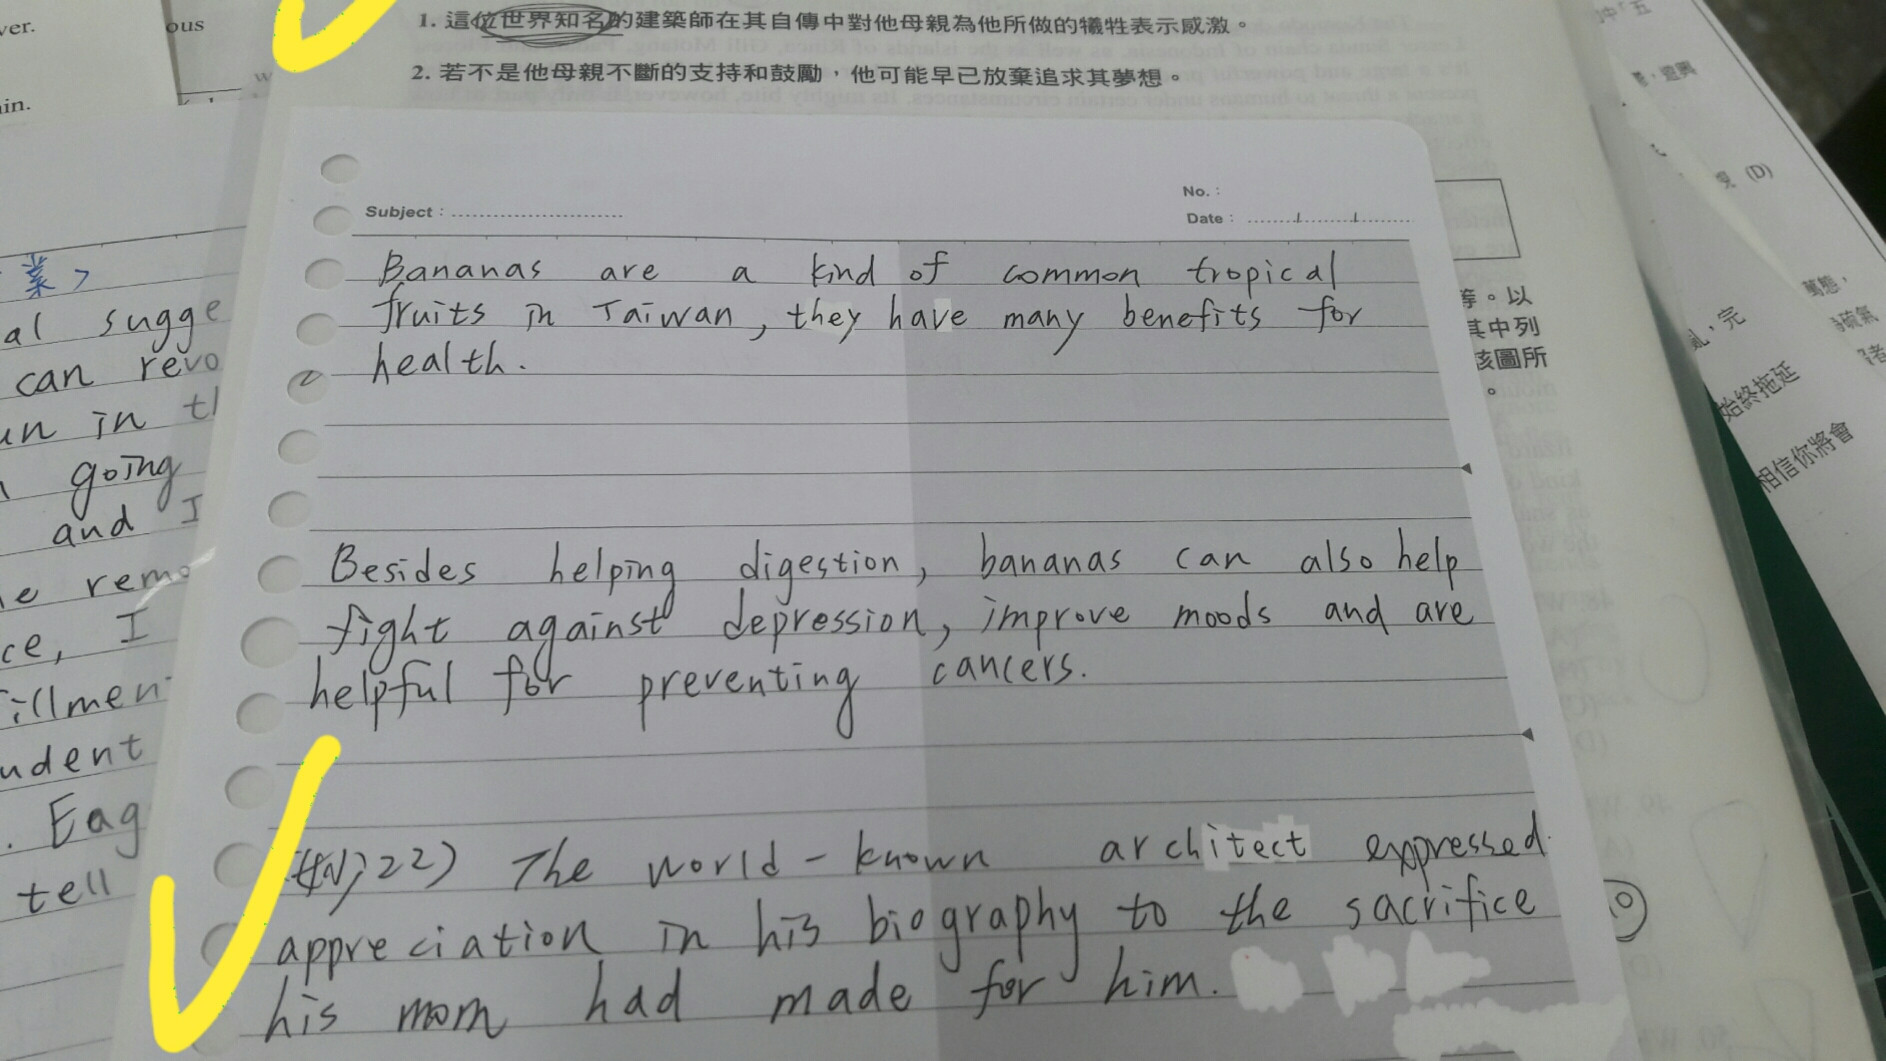 ver.
ous
in.
1. 這位世界知名的建築師在其自傳中對他母親為他所做的犧牲表示感激。
2. 若不是他母親不斷的支持和鼓勵，他可能早已放棄追求其夢想。
No.:
Subject:
Date:
Bananas are a kind of common tropical
fruits in Taiwan, they have many benefits for
health.
Besides helping digestion, bananas can also help
fight against depression, improve moods and are
helpful for preventing cancers.
22) The world-known architect expressed
appreciation in his biography to the sacrifice
his mom had made for him.
業，
al sugge
can revo
un in th
going
and I
e remo
ce, I
illmen
udent
. Eag
tell
(D)
等。以
其中列
該圖所
。
萬態，
亂，完
始終拖延
相信你將會